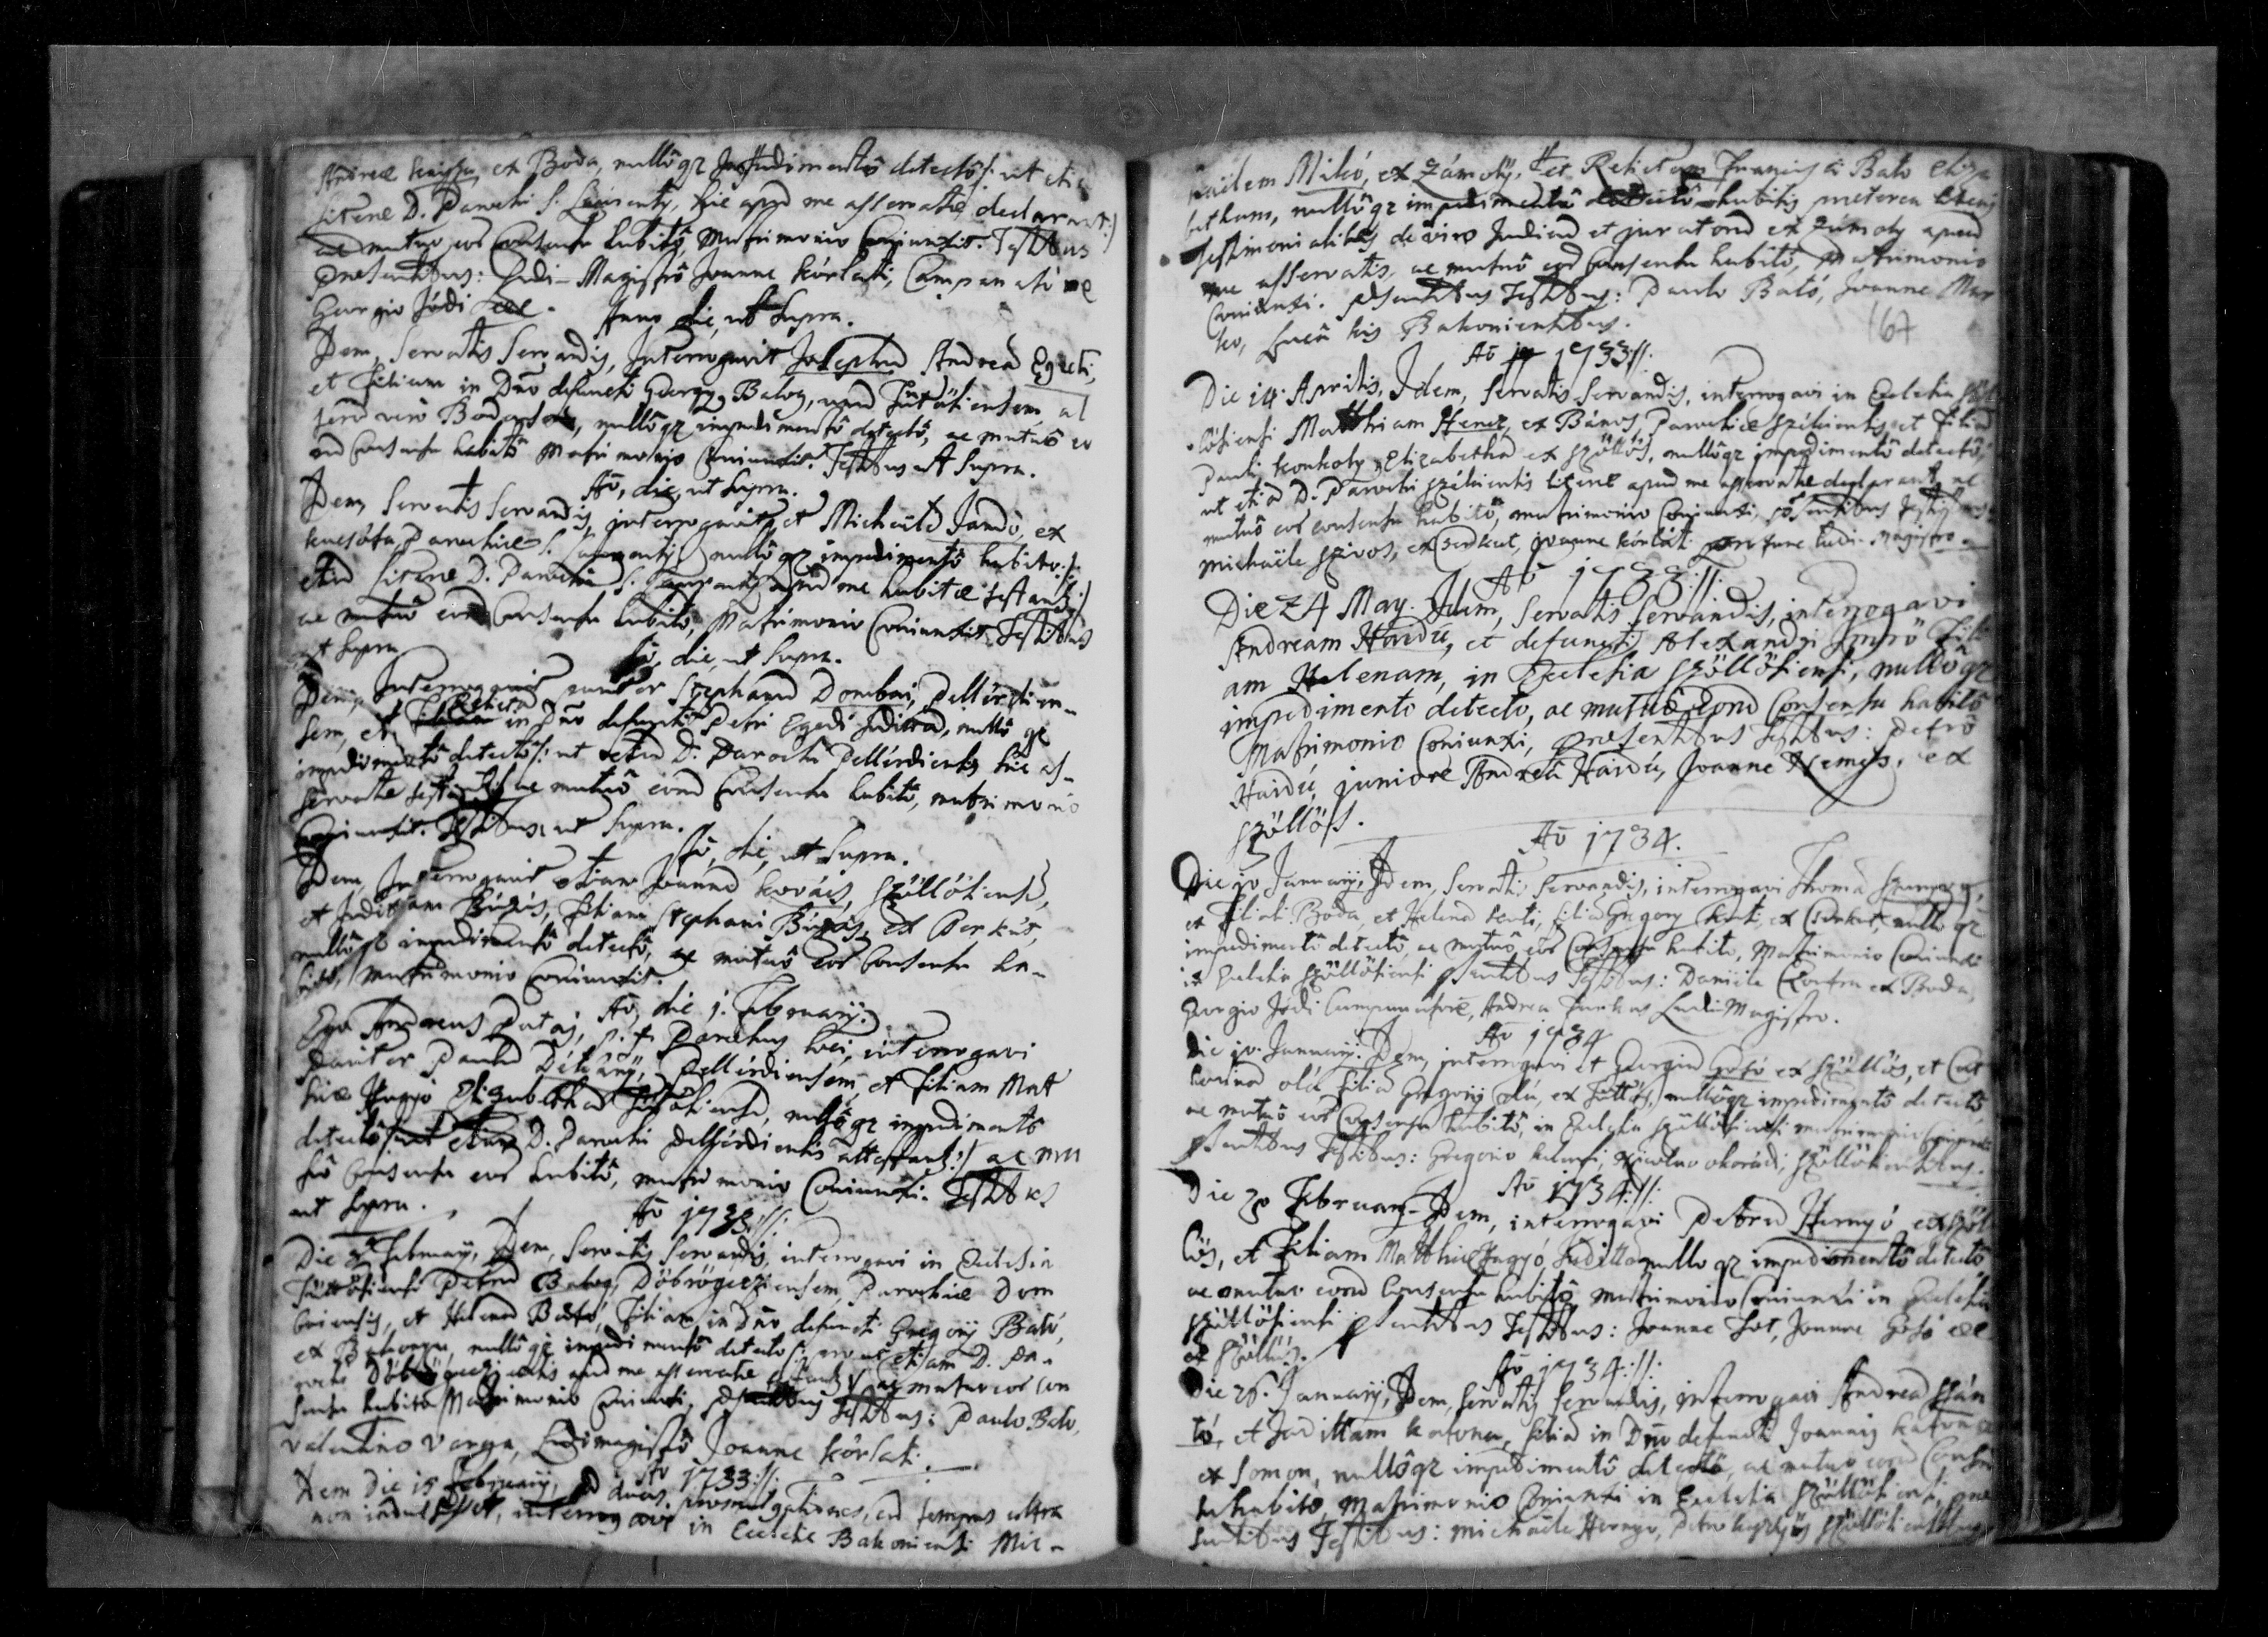 Andreæ ex Boda, nullôqz Impedimentô detectô /: ut etiã
Literæ D. Parochi S. Laurenty, hic apud me asservatæ declarant :/
ac mutuo eor̃ Consensu habitô, Matrimonio Coniunxit. Testibus
præsentibus: Ludi-Magistrô Joanne Kórlati, Campanatore
Georgio Jódi
Anno die, ut Supra.
Idem, Servatis Servandis, Interrogavit Josephũ Andreã Egieti,
et Filiam in Dño defuncti Georgy Balog, unũ al
terũ vero nullôqz impedimentô detectô, ac mutuô eo
rũ Consensu habitô Matrimonio Coniunxit. Testibus ut Supra.
Aõ, die, ut Supra.
Idem, Servatis Servandis, interrogavit et Michaelẽ Jandó, ex
Parochiæ S. Laurentij, nullôqz impedimentô habito /:
etiã Literæ D. Parochi S. Laurenty apud me habitæ testantr :/
ac mutuô eorũ Consensu habitô, Matrimonio Coniunxit. Testibus
ut Supra
Aõ, die, ut Supra.
Idem, Interrogavit pariter Stephanũ Dombai, Pellérdien-
sem, et Relictã in Dño defuncti Petri Egedi Judithã, nullô qz
impedimentô detectô /: ut Literæ D. Parochi Pellérdiensis hic as-
servatæ ac mutuô eorũ Consensu habitô, matrimonio
Coniunxit. Testibus, ut Supra.
Aõ, die, ut Supra.
Idem, Interrogavit etiam Joannẽ Kovács, Szöllösiensẽ,
et Juditham Búzás, Filiam Stephani Búzás, ex Berkus,
nullôqz impedimentô detectô, ac mutuô eor̃ Consensu ha-
bitô, Matrimonio Coniunxit.
Aõ, die 1. February.
Ego Andreas Pataj, p. t. Parochus loci, interrogavi
pariter Paulũ Pellérdiensem, et Filiam Mat
thiæ Elizabethã nullôqz impedimento
detectô /: ut etiam D. Parochi Pellérdiensis attestant :/ ac mu
tuô Consensu eor̃ habitô, matrimonio Coniunxi. Testibus
ut Supra.
Aõ 1733://:
Die 3 February, Idem, Servatis Servandis, interrogavi in Ecclesia
Petrũ Balog, Döbrögeziensem, Parochiæ Dom
boiensis, et Helenã Bató, Filiam in Dño defuncti Gregorij Bató,
ex nullôqz impedimentô detecto /: prout etiam D. Pa-
rochi apud me asservatæ ac mutuo eor̃ con
sensu habito Matrimonio Coniunxi, præsentibus Testibus: Paulo Bato,
Valentino Varga, Ludimagistrô Joanne Kórlati.
Aõ 1733://:
Item die 15 February, ad duas promulgationes, cũ tempus ultra
non indulsisset, interrogavi in Ecclesia Bakoniensi Mic-
haëlem Mikó, ex Zámoly, et Relictam Francisci Bato Eliza
betham, nullôqz impedimentô detectô habitis præterea Literis
testimonialibus de viro Judicũ et juratorũ ex Zámoly apud
me asservatis, ac mutuô eorũ Consensu habitô, Matrimonio
Coniunxi. præsentibus Testibus: Paulo Bató, Joanne Mar
ko, Lucâ Kis Bakoniensibus.
167
Aõ 1733://:
Die 14. Aprilis, Idem, Servatis Servandis, interrogavi in Ecclesia Szöl
lösiensi Matthiam Henez, ex Bános, Parochiæ et Filiã
Pauli Konkoly, Elizabethã ex Szöllös, nullôqz impedimentô detectô,
ut etiã D. Parochi literæ apud me asservatæ declarant, ac
mutuô eor̃ consensu habitô, matrimonio Coniunxi, præsentibus Testibus
Michaële Szivos, ex Cserkut, Joanne Kórláti Ludi-Magistro.
Aõ 1733://:
Die 24 May. Idem, Servatis Servandis, interrogavi
Andream Haidú, et defuncti Alexandri Imrö Fili
am Helenam, in Ecclesia Szöllösiensi, nullôqz
impedimento detecto, ac mutuô eorũ Consensu habitô
Matrimonio Coniunxi, præsentibus testibus: Petrô
Haidú, juniore Andreâ Haidú, Joanne Nemes, ex
Szöllös.
Aõ 1734.
Die 10 January, Idem, Servatis Servandis, interrogavi Thomã
ex Filiali Boda, et Helenã Kenti, filiã Gregory Kenti, ex Cserkut, nulloqz
impedimentô detectô, ac mutuô eor̃ Consensu habito, Matrimonio Coniunxi
in Ecclesia Szöllösiensi præsentibus Testibus: Daniele ex Boda,
Georgio Jódi Campanatore, Andrea Farkas Ludi Magistro.
Aõ 1734
Die 10. January: Idem, interrogavi et Georgiũ Gósó ex Szöllös, et Cat
harinã Oláh filiã Gregorij ex nullôqz impedimentô detectô
ac mutuô eor̃ Consensu habitô, in Ecclesia Szöllösiensi matrimonio Coniunxi
præsentibus Testibus: Gregorio Nicolao Szöllösiensibus.
Aõ 1734://:
Die 20 February. Idem, interrogavi Petrũ Hernyó, ex Szöl
lös, et Filiam Matthiæ Judithã, nulloqz impedimentô detectô
ac mutuo eorũ Consensu habitô, matrimonio Coniunxi in Ecclesia
Szöllösiensi præsentibus Testibus: Joanne Joanne Gósó
ex Szöllös.
Aõ 1734://:
Die 26. January, Idem, Servatis Servandis, interrogavi Andreã Szán
tó, et Juditham Katona, filiã in Dño defuncti Joannis Katona
ex Somon, nullôqz impedimentô detectô, ac mutuo eorũ Consen
su habito, Matrimonio Coniunxi in Ecclesia Szöllösiensi, præ
sentibus Testibus: Michaële Hernyo, Petro Szöllösiensibus